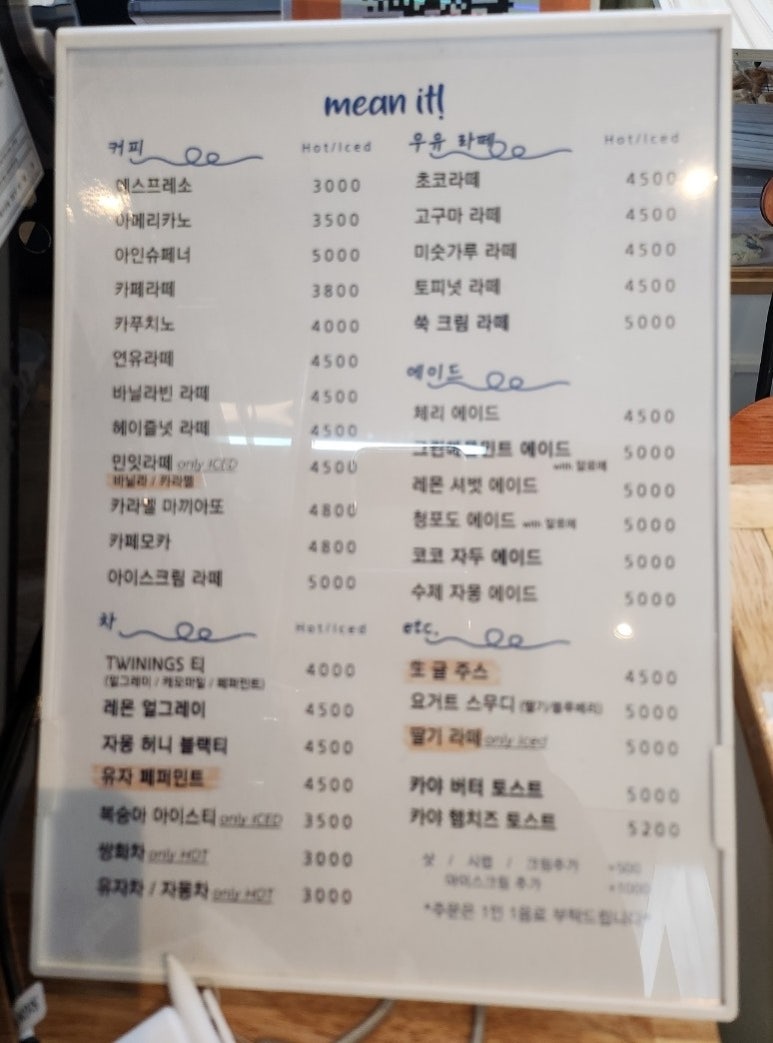 mean it!
커피 Hot/Iced
에스프레소 3000
아메리카노 3500
아인슈페너 5000
카페라떼 3800
카푸치노 4000
연유라떼 4500
바닐라빈 라떼 4500
헤이즐넛 라떼 4500
민잇라떼 only ICED 4500
바닐라 / 카라멜
카라멜 마끼아또 4800
카페모카 4800
아이스크림 라떼 5000
차 Hot/Iced
TWININGS 티 4000
(얼그레이 / 캐모마일 / 페퍼민트)
레몬 얼그레이 4500
자몽 허니 블랙티 4500
유자 페퍼민트 4500
복숭아 아이스티 only ICED 3500
쌍화차 only HOT 3000
유자차 / 자몽차 only HOT 3000
우유 라떼 Hot/Iced
초코라떼 4500
고구마 라떼 4500
미숫가루 라떼 4500
토피넛 라떼 4500
쑥 크림 라떼 5000
에이드
체리 에이드 4500
에이드 5000
with
레몬 셔벗 에이드 5000
청포도 에이드 with 5000
코코 자두 에이드 5000
수제 자몽 에이드 5000
etc.
귤 주스 4500
요거트 스무디 (딸기/블루베리) 5000
딸기 라떼 only Iced 5000
카야 버터 토스트 5000
카야 햄치즈 토스트 5200
샷 / 시럽 / 크림추가 +500
아이스크림 추가 +1000
*주문은 1인 1음료 부탁드립니다*